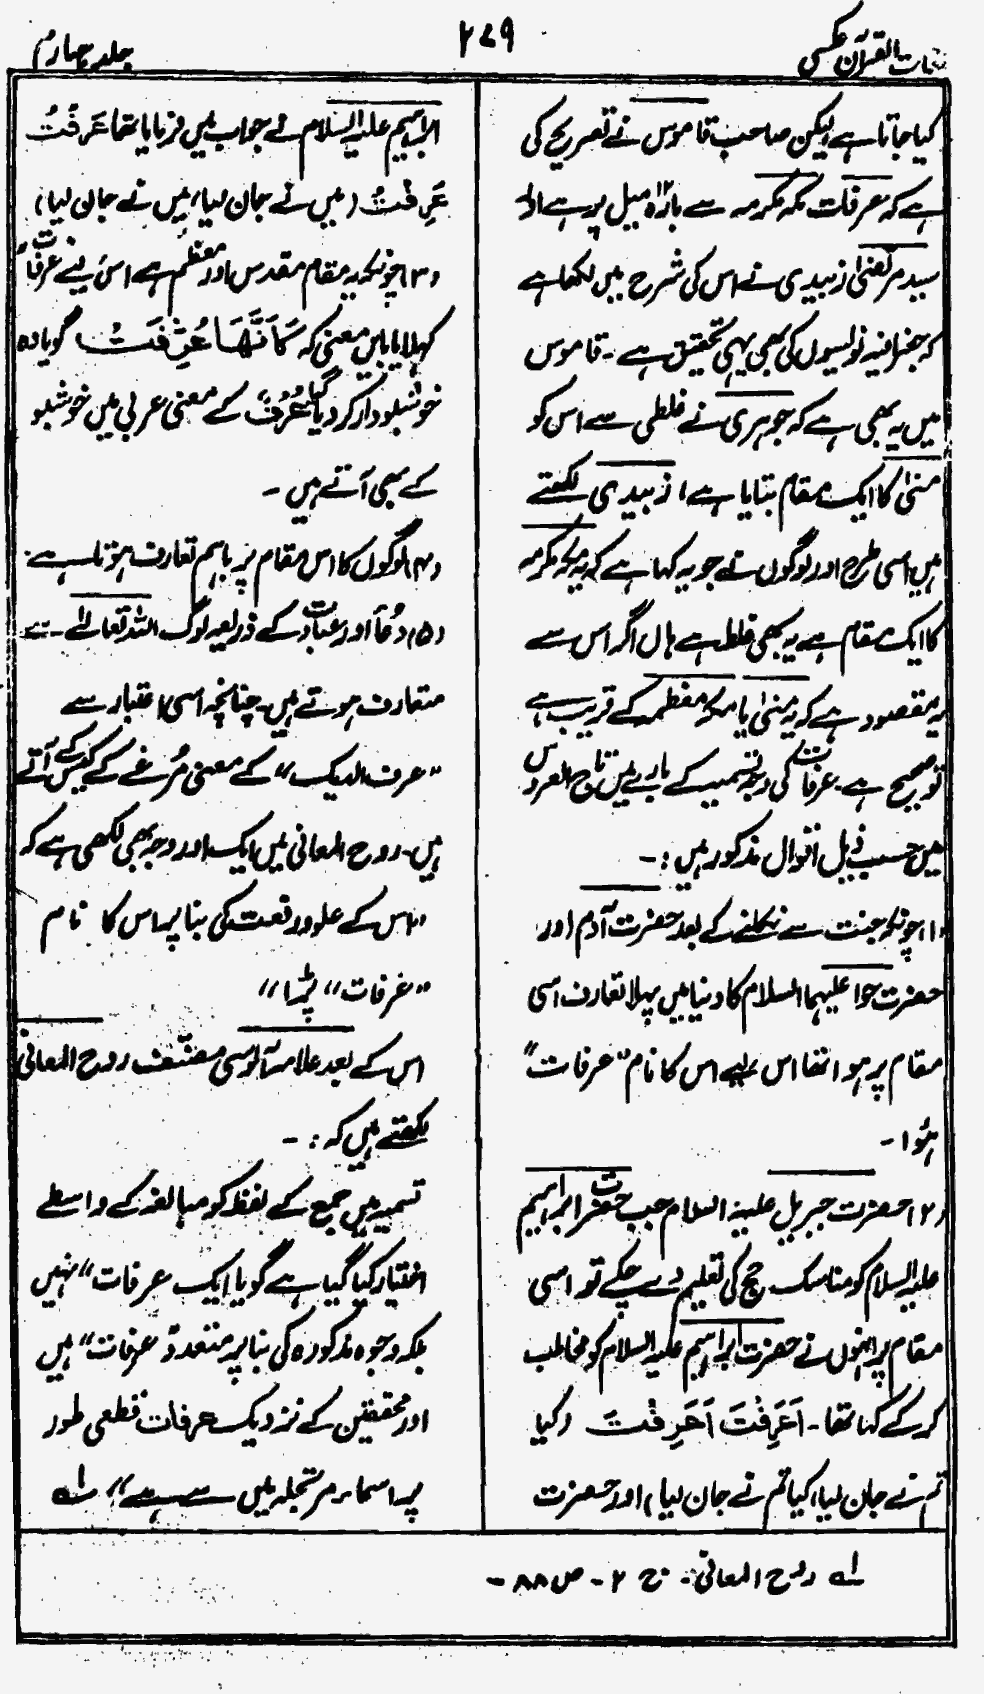 لغات القرآن عکسی
۲۷۹
جلد چہارم
کیا جاتا ہے لیکن صاحب قاموس نے تصریح کی
ہے کہ عرفات مکہ مکرمہ سے بارہ ۱۲ میل پر ہے اور
سید مرتضیٰ زبیدی نے اس کی شرح میں لکھا ہے
کہ جغرافیہ نویسوں کی بھی یہی تحقیق ہے۔ قاموس
میں یہ بھی ہے کہ جوہری نے غلطی سے اس کو
منیٰ کا ایک مقام بتایا ہے، زبیدی لکھتے
ہیں اسی طرح اور لوگوں نے جو یہ کہا ہے کہ یہ مکہ مکرمہ
کا ایک مقام ہے یہ بھی غلط ہے ہاں اگر اس سے
یہ مقصود ہے کہ یہ منیٰ یا مکہ معظمہ کے قریب ہے
تو صحیح ہے۔ عرفات کی وجہ تسمیہ کے بارے میں تاج العروس
میں حسب ذیل اقوال مذکور ہیں :۔
(۱) چونکہ جنت سے نکلنے کے بعد حضرت آدم اور
حضرت حوا علیہما السلام کا دنیا میں پہلا تعارف اسی
مقام پر ہوا تھا اس لیے اس کا نام "عرفات"
ہُوا۔
(۲) حضرت جبریل علیہ السلام جب حضرت ابراہیم
علیہ السلام کو مناسک حج کی تعلیم دے چکے تو اسی
مقام پر انہوں نے حضرت ابراہیم علیہ السلام کو مخاطب
کر کے کہا تھا۔ اَعَرِفْتَ اَعَرِفْتَ (کیا
تم نے جان لیا، کیا تم نے جان لیا) اور حضرت
ابراہیم علیہ السلام نے جواب میں فرمایا تھا عَرَفْتُ
عَرِفْتُ (میں نے جان لیا، میں نے جان لیا)
(۳) چونکہ یہ مقام مقدس اور معظم ہے اس لیے عرفات
کہلایا بایں معنی کہ کَاَنَّهَا عُرِّفَتْ گویا وہ
خوشبودار کر دیا گیا عُرْف کے معنی عربی میں خوشبو
کے بھی آتے ہیں ۔
(۴) لوگوں کا اس مقام پر باہم تعارف ہوتا ہے۔
(۵) دُعا اور عبادت کے ذریعہ لوگ اللہ تعالےٰ سے
متعارف ہوتے ہیں۔ چنانچہ اسی اعتبار سے
"عرف الدیک" کے معنی مُرغے کے کیس کے آتے
ہیں۔ روح المعانی میں ایک اور وجہ بھی لکھی ہے کہ
"اس کے علو و رفعت کی بنا پر اس کا نام
"عرفات" پڑا"
اس کے بعد علامہ آلوسی مصنّف روح المعانی
لکھتے ہیں کہ :۔
تسمیہ میں جمع کے لفظ کو مبالغہ کے واسطے
اختیار کیا گیا ہے گویا ایک عرفات" نہیں
بلکہ وجوہ مذکورہ کی بنا پر متعدد "عرفات" ہیں
اور محققین کے نزدیک عرفات قطعی طور
پر اسماء مرتجلہ میں سے ہے" لہ
لہ روح المعانی۔ ج ۲۔ ص ۸۸۔